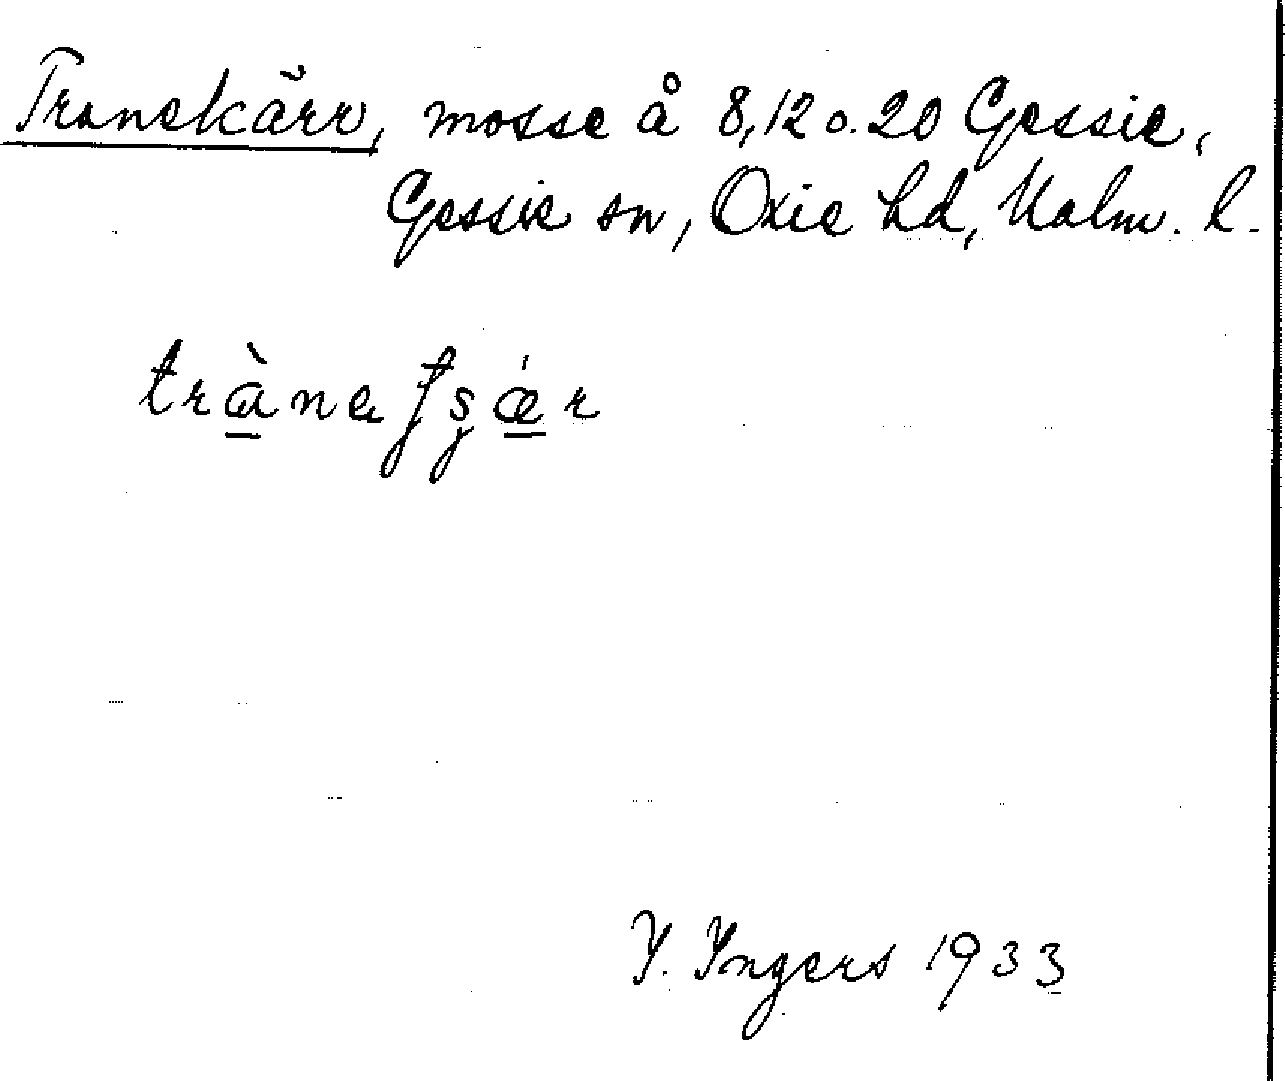 Tranekärr, mosse å 8,12 o. 20 Gessie,
Gessie sn, Oxie hd, Malm. l.
trànatʂǽr
I. Ingers 1933